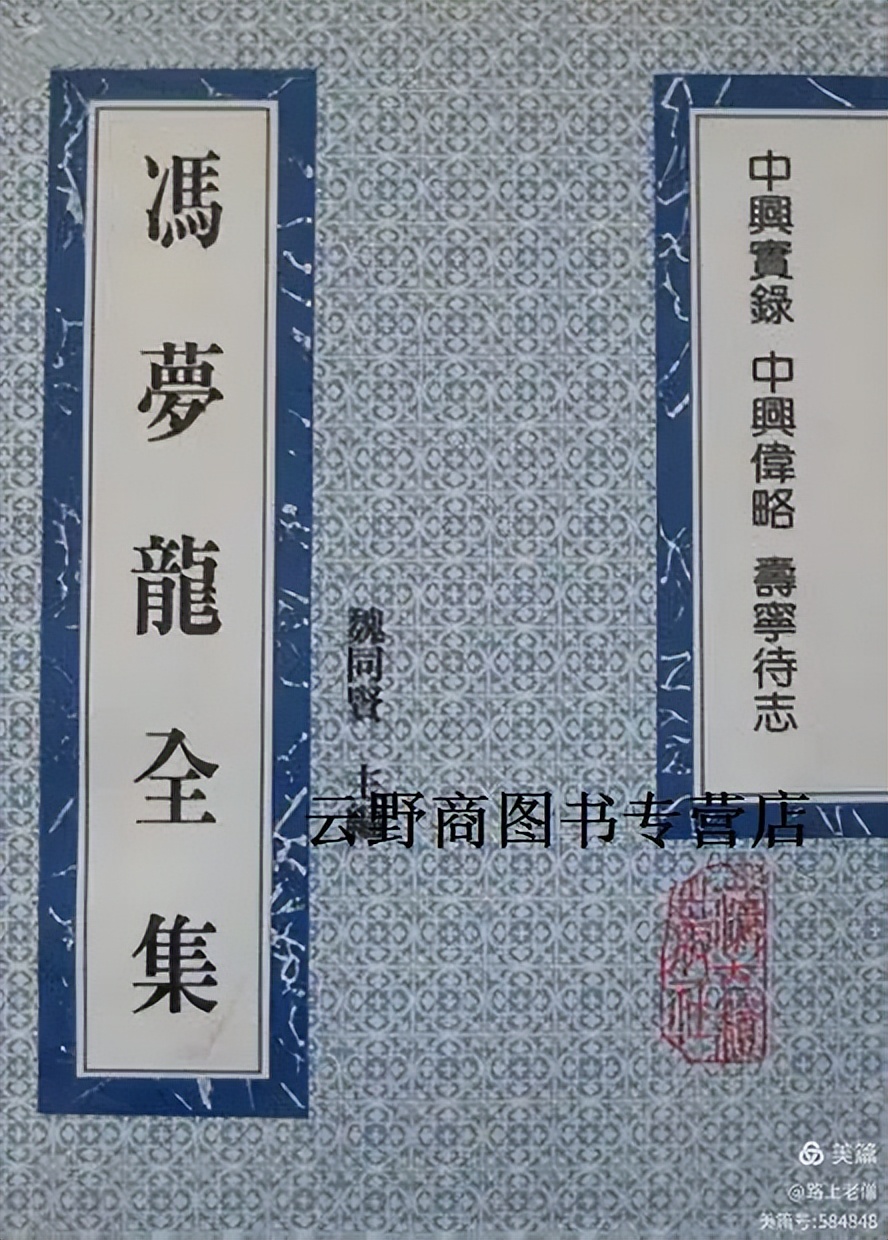 馮夢龍全集
魏同賢 主編
中興實錄 中興偉略 壽寧待志
云野商图书专营店
美篇
@路上老僧
美篇号:584848